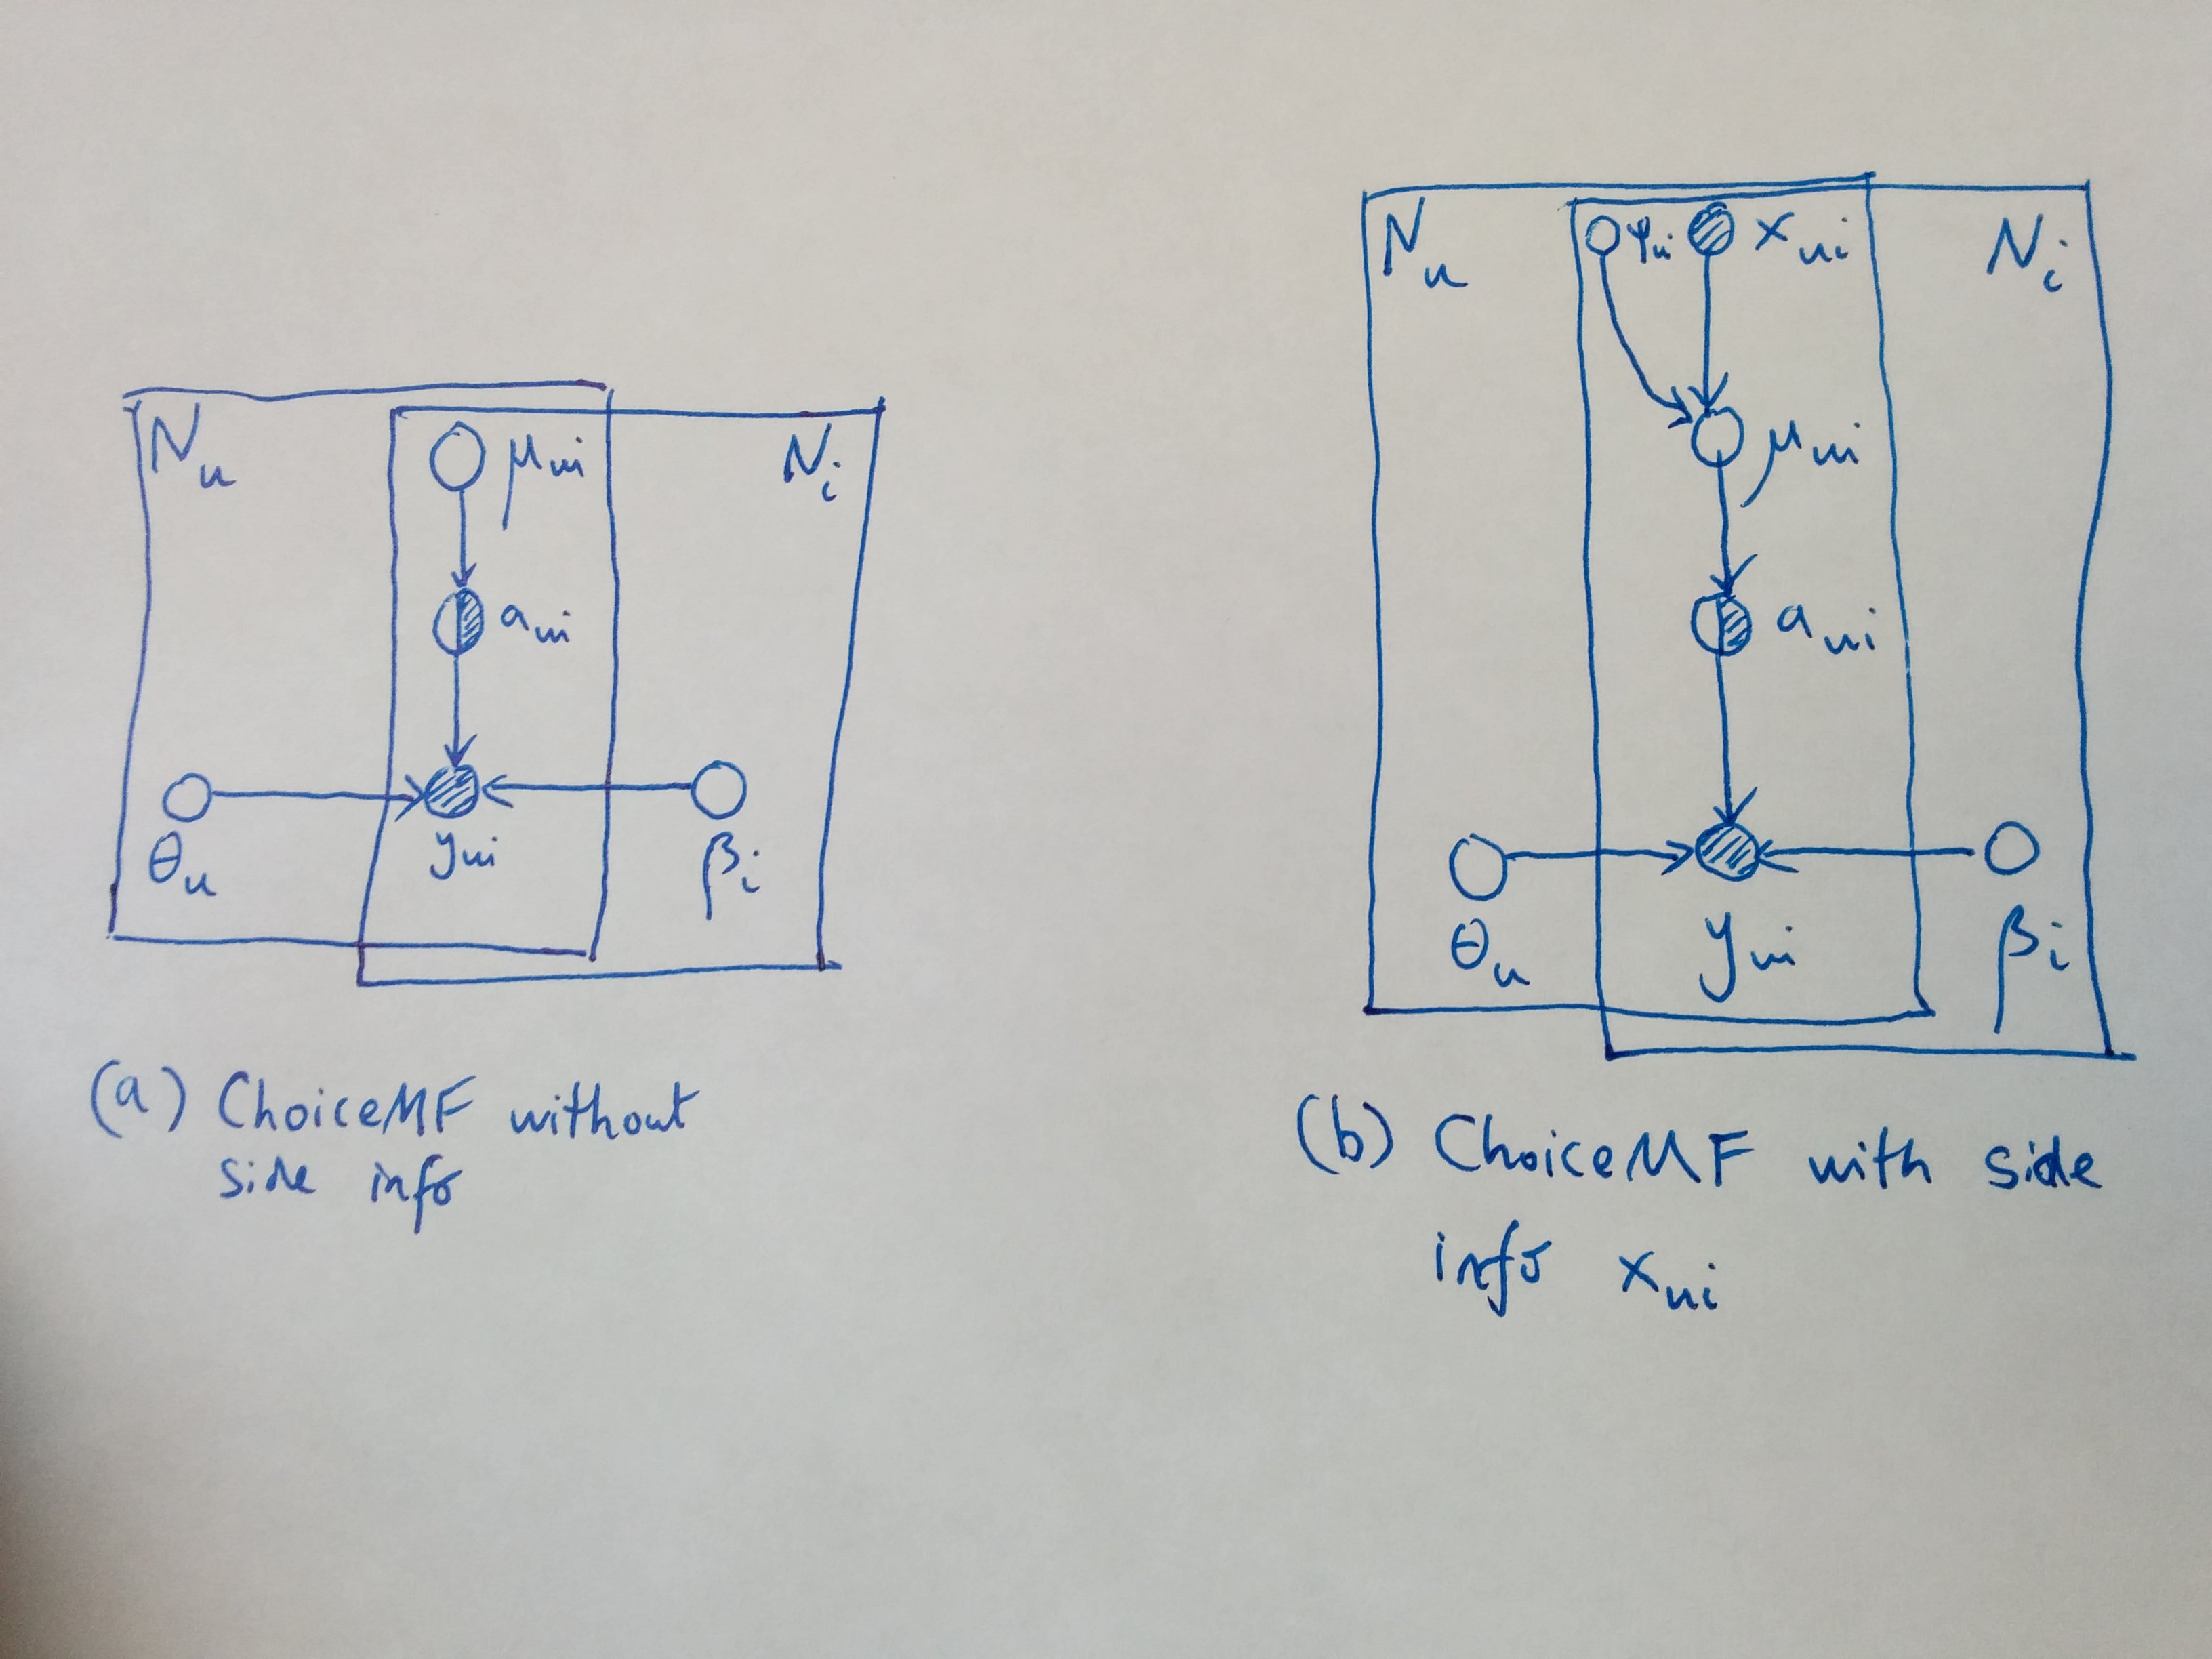 N_u
μ_ui
N_i
a_ui
θ_u
y_ui
β_i
(a) ChoiceMF without
side info
N_u
φ_ui x_ui
N_i
μ_ui
a_ui
θ_u
y_ui
β_i
(b) ChoiceMF with side
info x_ui